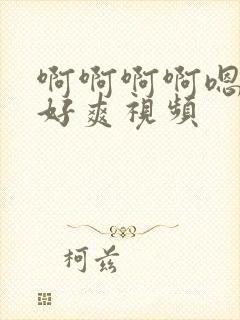 啊啊啊啊嗯
好爽視頻
柯兹